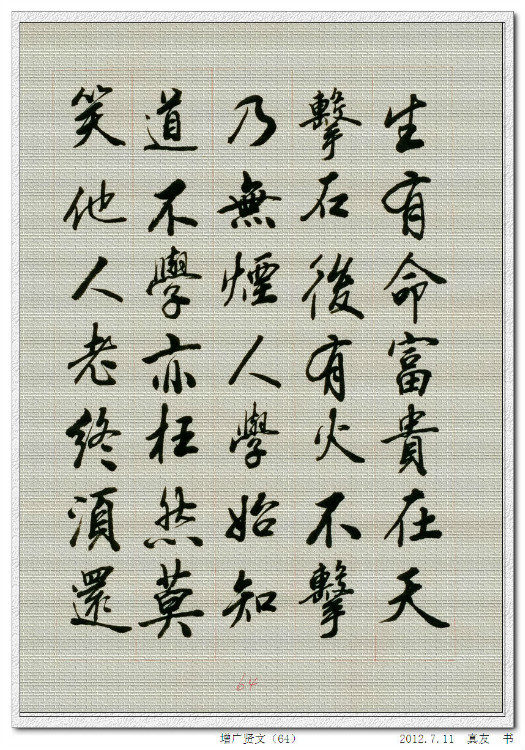 生有命富貴在天
擊石後有火不擊
乃無煙人學始知
道不學亦枉然莫
笑他人老終須還
64
增广贤文（64）
2012.7.11 真友 书